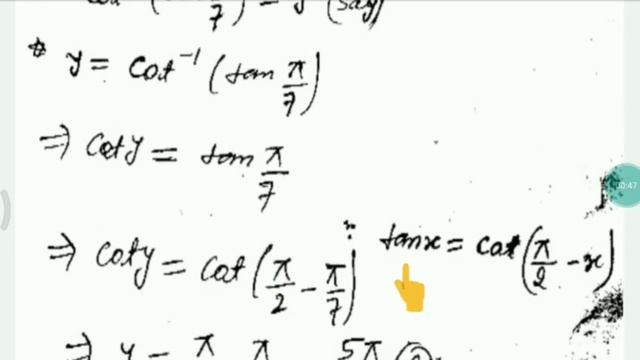 7) = y (say)
* y = cot⁻¹ (tan π/7)
⇒ cot y = tan π/7
⇒ cot y = cot (π/2 − π/7) ∵ tan x = cot (π/2 − x)
⇒ y = π π 5π
00:47